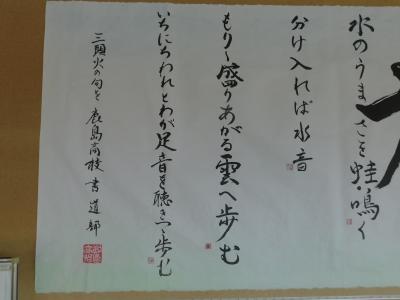 水のうまさを蛙鳴く
分け入れば水音
もり〳〵盛りあがる雲へ歩む
いちにちわれとわが足音を聴きつゝ歩む
三頭火の句を 鹿島高校書道部